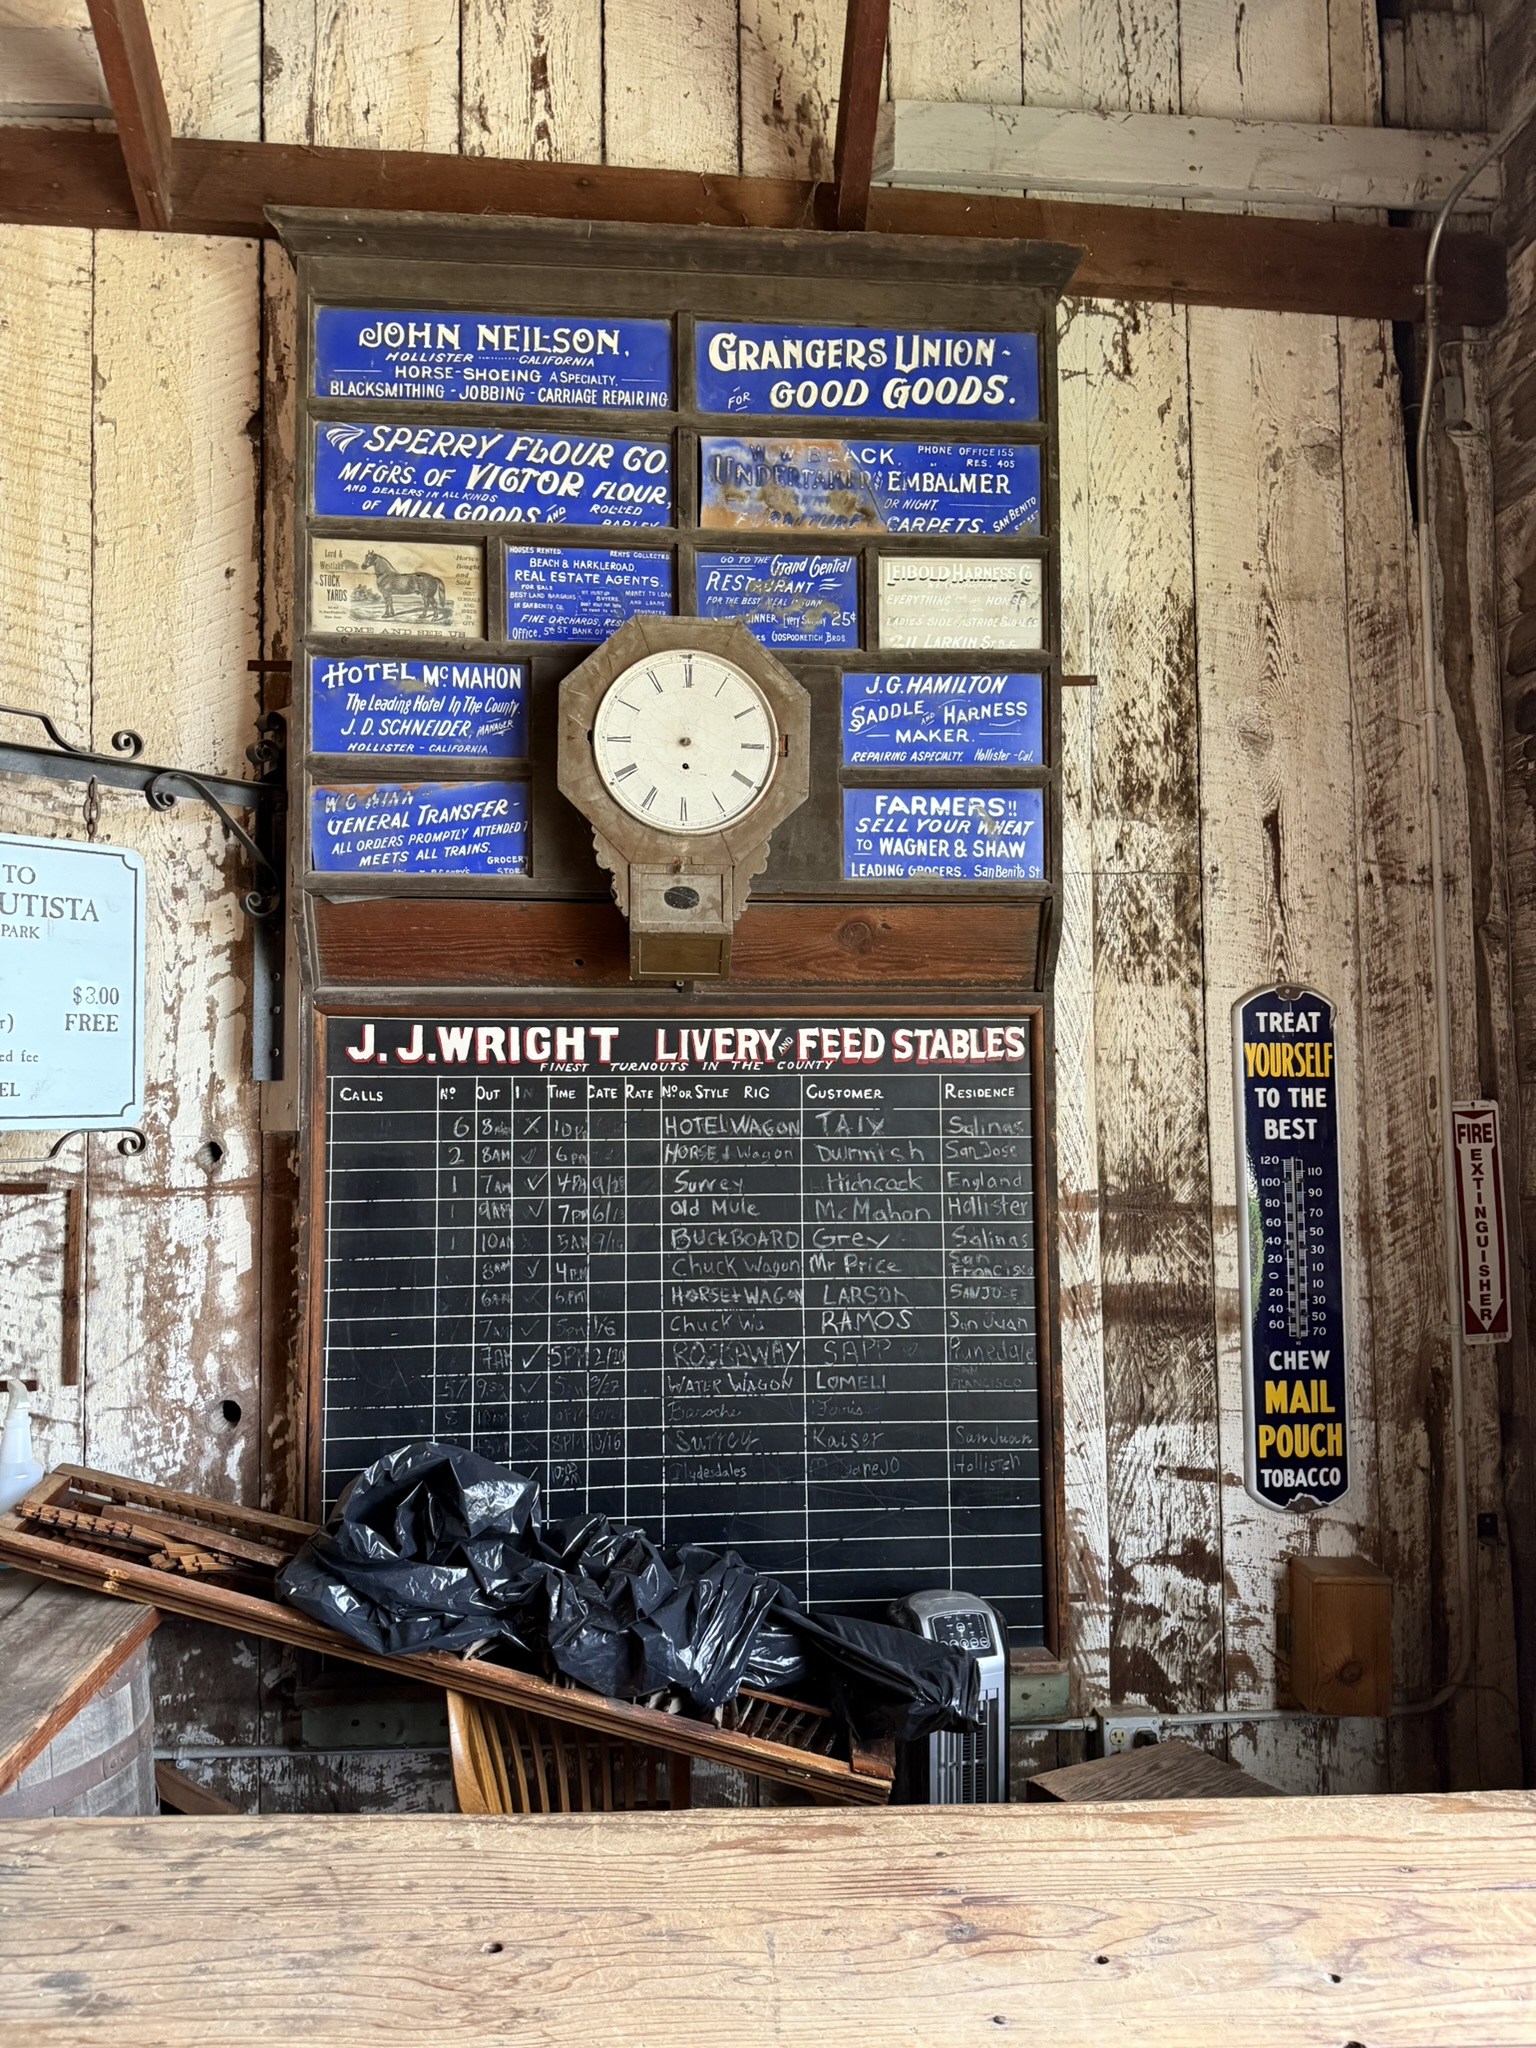 JOHN NEILSON,
HOLLISTER CALIFORNIA
HORSE-SHOEING A SPECIALTY,
BLACKSMITHING - JOBBING - CARRIAGE REPAIRING
GRANGERS UNION -
FOR GOOD GOODS.
SPERRY FLOUR CO.
MFGRS. OF VICTOR FLOUR,
AND DEALERS IN ALL KINDS ROLLED
OF MILL GOODS AND BARLEY
W. W. BLACK, PHONE OFFICE 155
RES. 405
UNDERTAKER & EMBALMER
OR NIGHT.
FURNITURE CARPETS. SAN BENITO
Lord &
STOCK
YARDS
Horses
Bought
and
Sold
COME AND SEE US
HOUSES RENTED. RENTS COLLECTED.
BEACH & HARKLEROAD,
REAL ESTATE AGENTS.
FOR SALE
BEST LAND BARGAINS MONEY TO LOAN
IN SAN BENITO CO. AND LOANS
FINE ORCHARDS,
Office, 5th ST. BANK OF
GO TO THE Grand Central
RESTAURANT
FOR THE BEST MEAL IN TOWN
DINNER Every 25¢
GOSPODNETICH BROS
LEIBOLD HARNESS CO
EVERYTHING HORSE
LADIES SIDE/ASTRIDE
211 LARKIN
HOTEL MCMAHON
The Leading Hotel In The County.
J. D. SCHNEIDER, MANAGER
HOLLISTER - CALIFORNIA.
J.G. HAMILTON
SADDLE AND HARNESS
MAKER.
REPAIRING A SPECIALTY. Hollister-Cal.
GENERAL TRANSFER -
ALL ORDERS PROMPTLY ATTENDED
MEETS ALL TRAINS.
GROCERY
STORE
FARMERS!!
SELL YOUR WHEAT
TO WAGNER & SHAW
LEADING GROCERS. San Benito St
TO
UTISTA
PARK
$3.00
r) FREE
ed fee
EL
J. J. WRIGHT LIVERY AND FEED STABLES
FINEST TURNOUTS IN THE COUNTY
CALLS No OUT IN TIME DATE RATE No OR STYLE RIG CUSTOMER RESIDENCE
6 8 X 10 HOTEL WAGON TAIX Salinas
2 8AM 6PM HORSE & Wagon Durmish San Jose
1 7AM ✓ 4PM Surrey Hichcock England
1 9AM ✓ 7PM Old Mule McMahon Hollister
1 10AM 5AM BUCKBOARD Grey Salinas
8AM ✓ 4PM Chuck Wagon Mr Price San Francisco
6AM 5PM HORSE + WAGON LARSON SAN JOSE
7AM ✓ 5PM Chuck RAMOS San Juan
7AM ✓ 5PM 2/20 ROCKAWAY SAPP Prunedale
✓ WATER WAGON LOMELI SAN FRANCISCO
8 Barochi
8PM Surrey Kaiser San Juan
Hollister
TREAT
YOURSELF
TO THE
BEST
120 110
100 90
80 70
60 50
40 30
20 10
0 10
20 30
40 50
60 70
CHEW
MAIL
POUCH
TOBACCO
FIRE
EXTINGUISHER